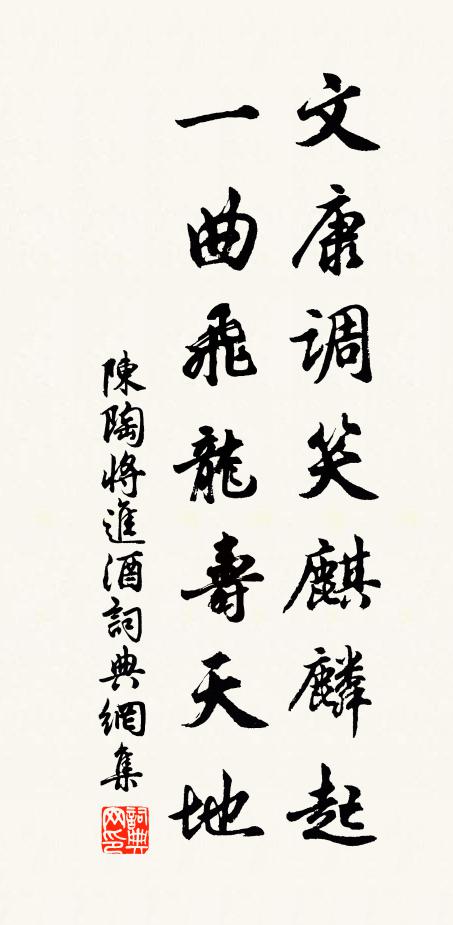 文康調笑麒麟起
一曲飛龍壽天地
陳陶將進酒詞典網集
詞典網印